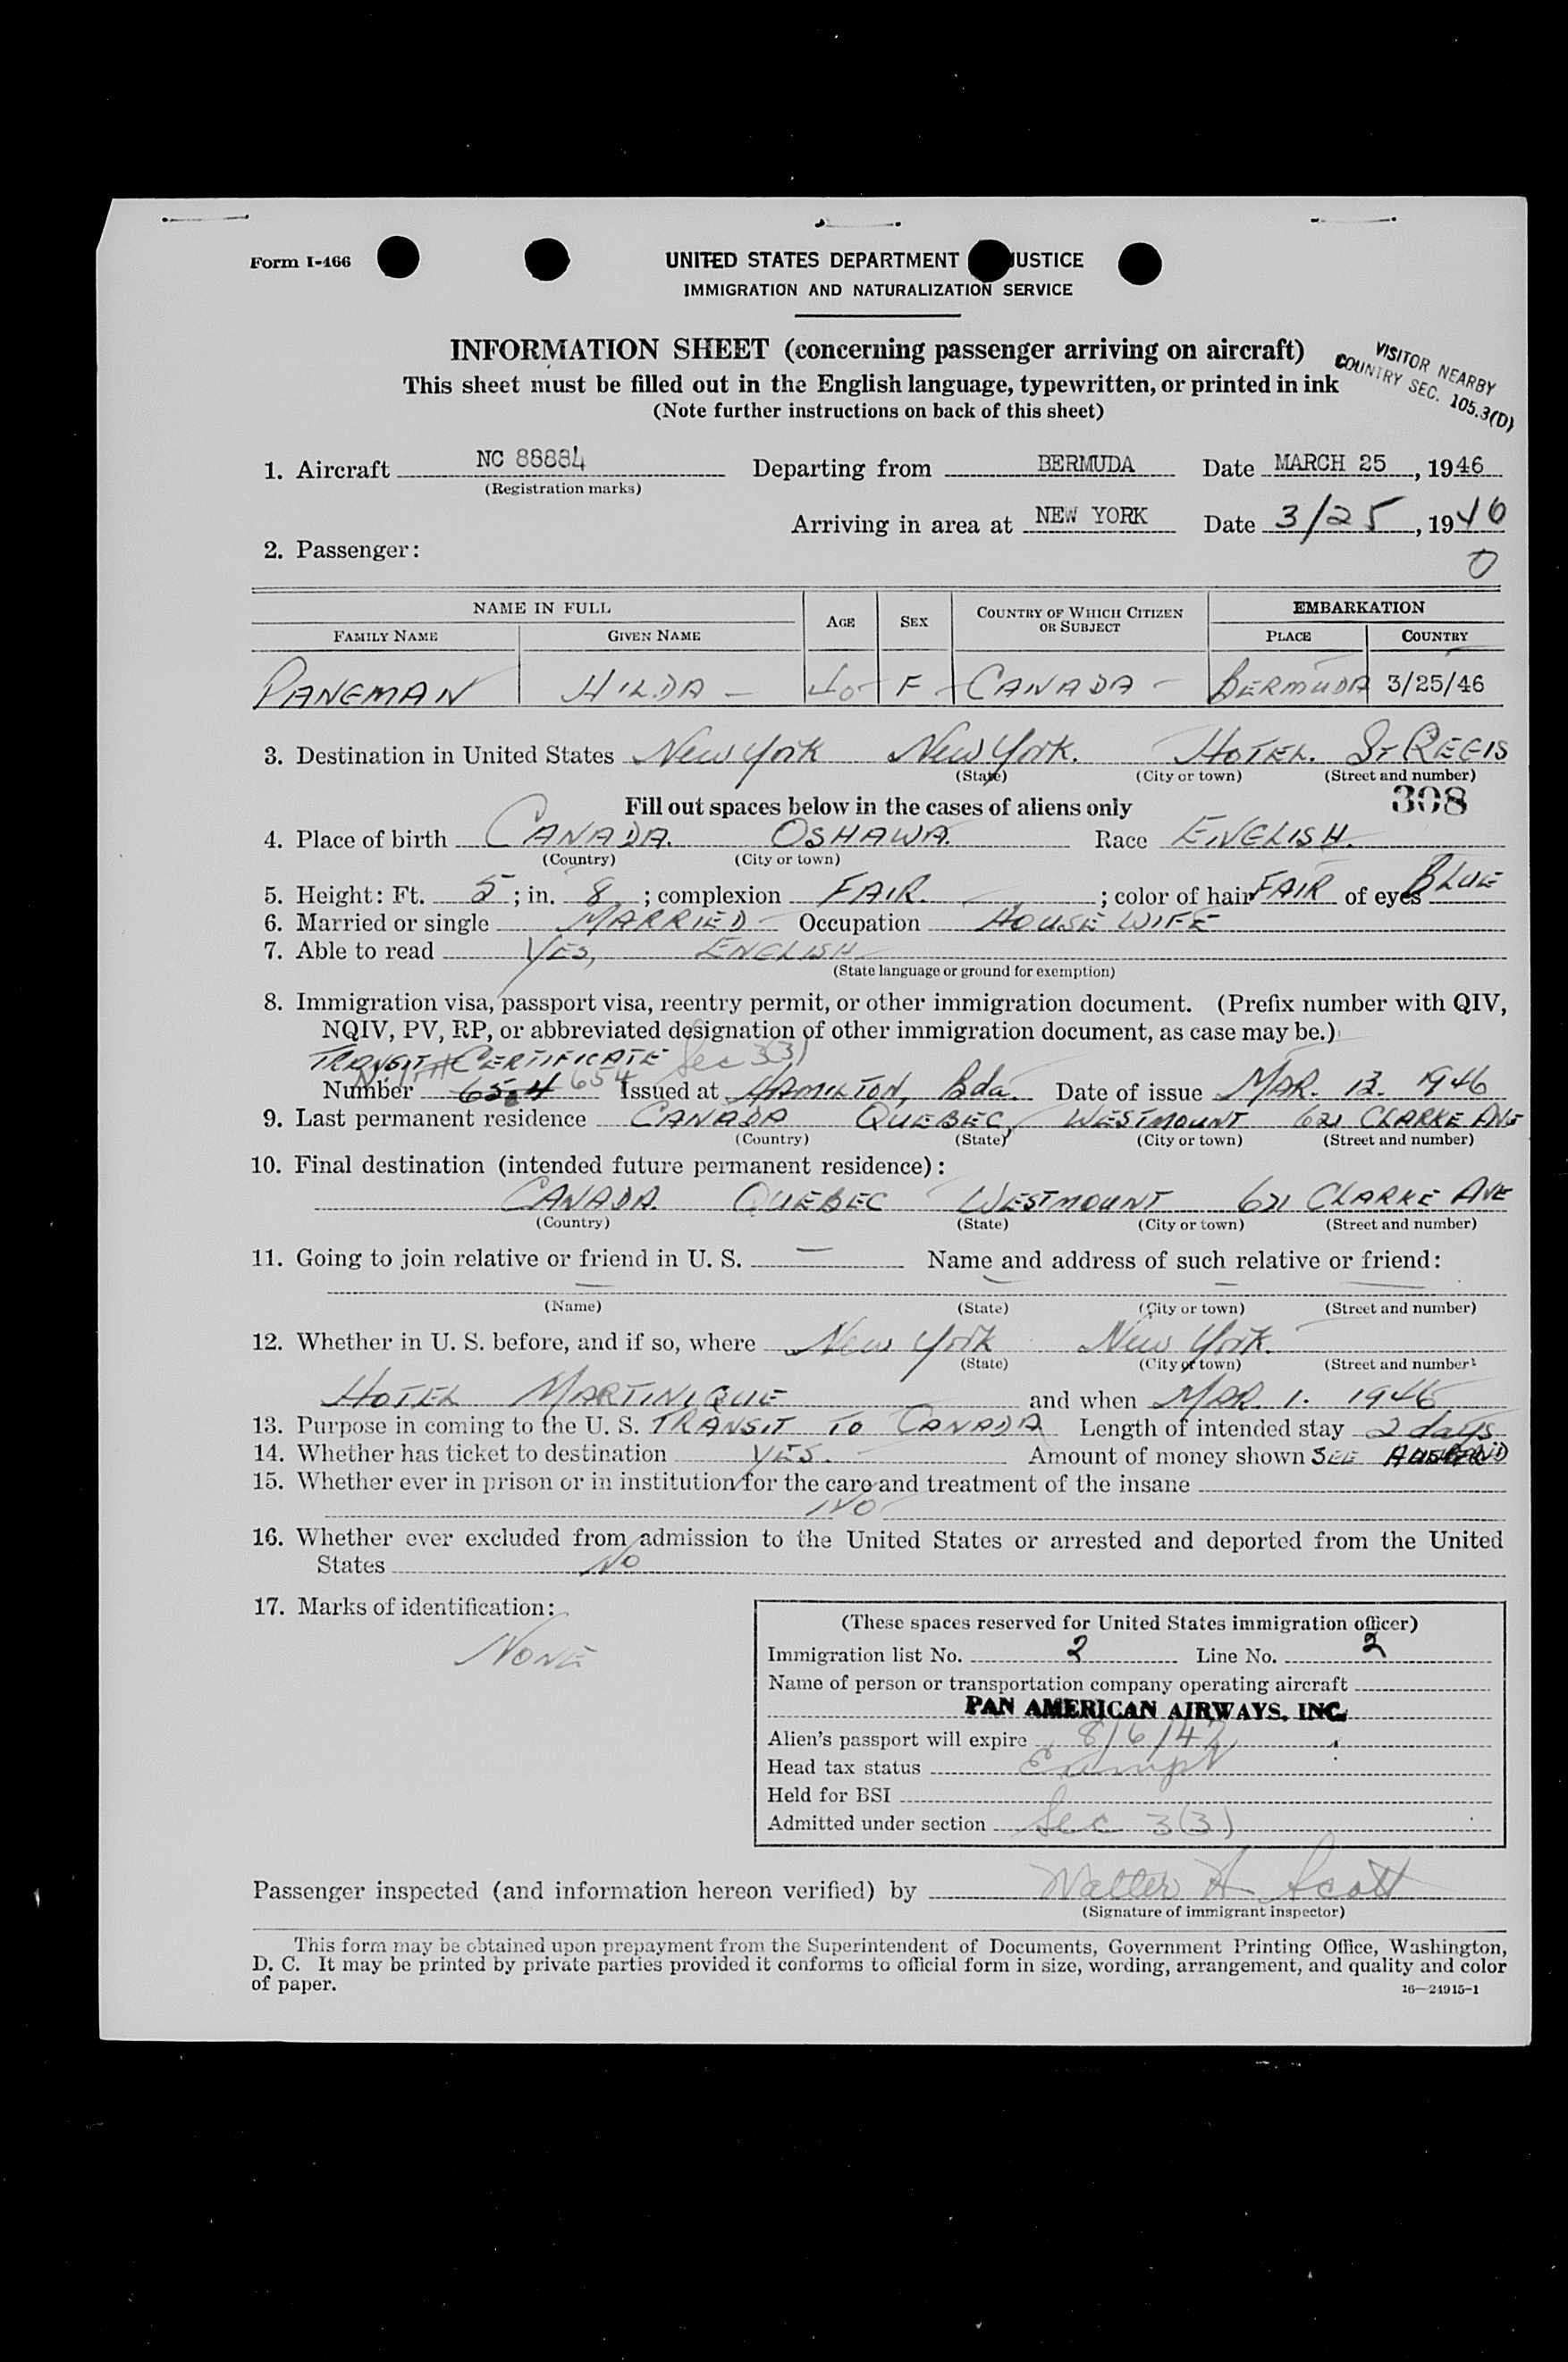 Form I-466
UNITED STATES DEPARTMENT JUSTICE
IMMIGRATION AND NATURALIZATION SERVICE
INFORMATION SHEET (concerning passenger arriving on aircraft)
This sheet must be filled out in the English language, typewritten, or printed in ink
(Note further instructions on back of this sheet)
VISITOR NEARBY
COUNTRY SEC. 105.3(D)
1. Aircraft NC 88884 Departing from BERMUDA Date MARCH 25, 1946
(Registration marks)
Arriving in area at NEW YORK Date 3/25, 1946
2. Passenger:
0
NAME IN FULL AGE SEX COUNTRY OF WHICH CITIZEN OR SUBJECT EMBARKATION
FAMILY NAME GIVEN NAME PLACE COUNTRY
PANGMAN HILDA - 40 - F - CANADA - BERMUDA 3/25/46
3. Destination in United States New York New York. HOTEL. ST REGIS
(State) (City or town) (Street and number)
Fill out spaces below in the cases of aliens only 308
4. Place of birth CANADA. OSHAWA. Race ENGLISH.
(Country) (City or town)
5. Height: Ft. 5; in. 8; complexion FAIR.; color of hair FAIR of eyes BLUE
6. Married or single MARRIED - Occupation HOUSE WIFE
7. Able to read YES, ENGLISH
(State language or ground for exemption)
8. Immigration visa, passport visa, reentry permit, or other immigration document. (Prefix number with QIV,
NQIV, PV, RP, or abbreviated designation of other immigration document, as case may be.)
TRANSIT CERTIFICATE Sec 3(3)
Number 654 654 Issued at HAMILTON, Bda. Date of issue MAR. 13. 1946
9. Last permanent residence CANADA QUEBEC, WESTMOUNT 621 CLARKE AVE
(Country) (State) (City or town) (Street and number)
10. Final destination (intended future permanent residence):
CANADA. QUEBEC WESTMOUNT 621 CLARKE AVE
(Country) (State) (City or town) (Street and number)
11. Going to join relative or friend in U. S. — Name and address of such relative or friend:
(Name) (State) (City or town) (Street and number)
12. Whether in U. S. before, and if so, where New York New York.
(State) (City or town) (Street and number)
HOTEL MARTINIQUE and when MAR. 1. 1946
13. Purpose in coming to the U. S. TRANSIT TO CANADA Length of intended stay 2 days
14. Whether has ticket to destination YES. Amount of money shown SEE HUSBAND
15. Whether ever in prison or in institution for the care and treatment of the insane
NO
16. Whether ever excluded from admission to the United States or arrested and deported from the United
States NO
17. Marks of identification:
NONE
(These spaces reserved for United States immigration officer)
Immigration list No. 2 Line No. 2
Name of person or transportation company operating aircraft
PAN AMERICAN AIRWAYS, INC.
Alien's passport will expire 8/6/47
Head tax status Exempt
Held for BSI
Admitted under section Sec 3(3)
Passenger inspected (and information hereon verified) by Walter A Scott
(Signature of immigrant inspector)
This form may be obtained upon prepayment from the Superintendent of Documents, Government Printing Office, Washington,
D. C. It may be printed by private parties provided it conforms to official form in size, wording, arrangement, and quality and color
of paper.
16—24915-1